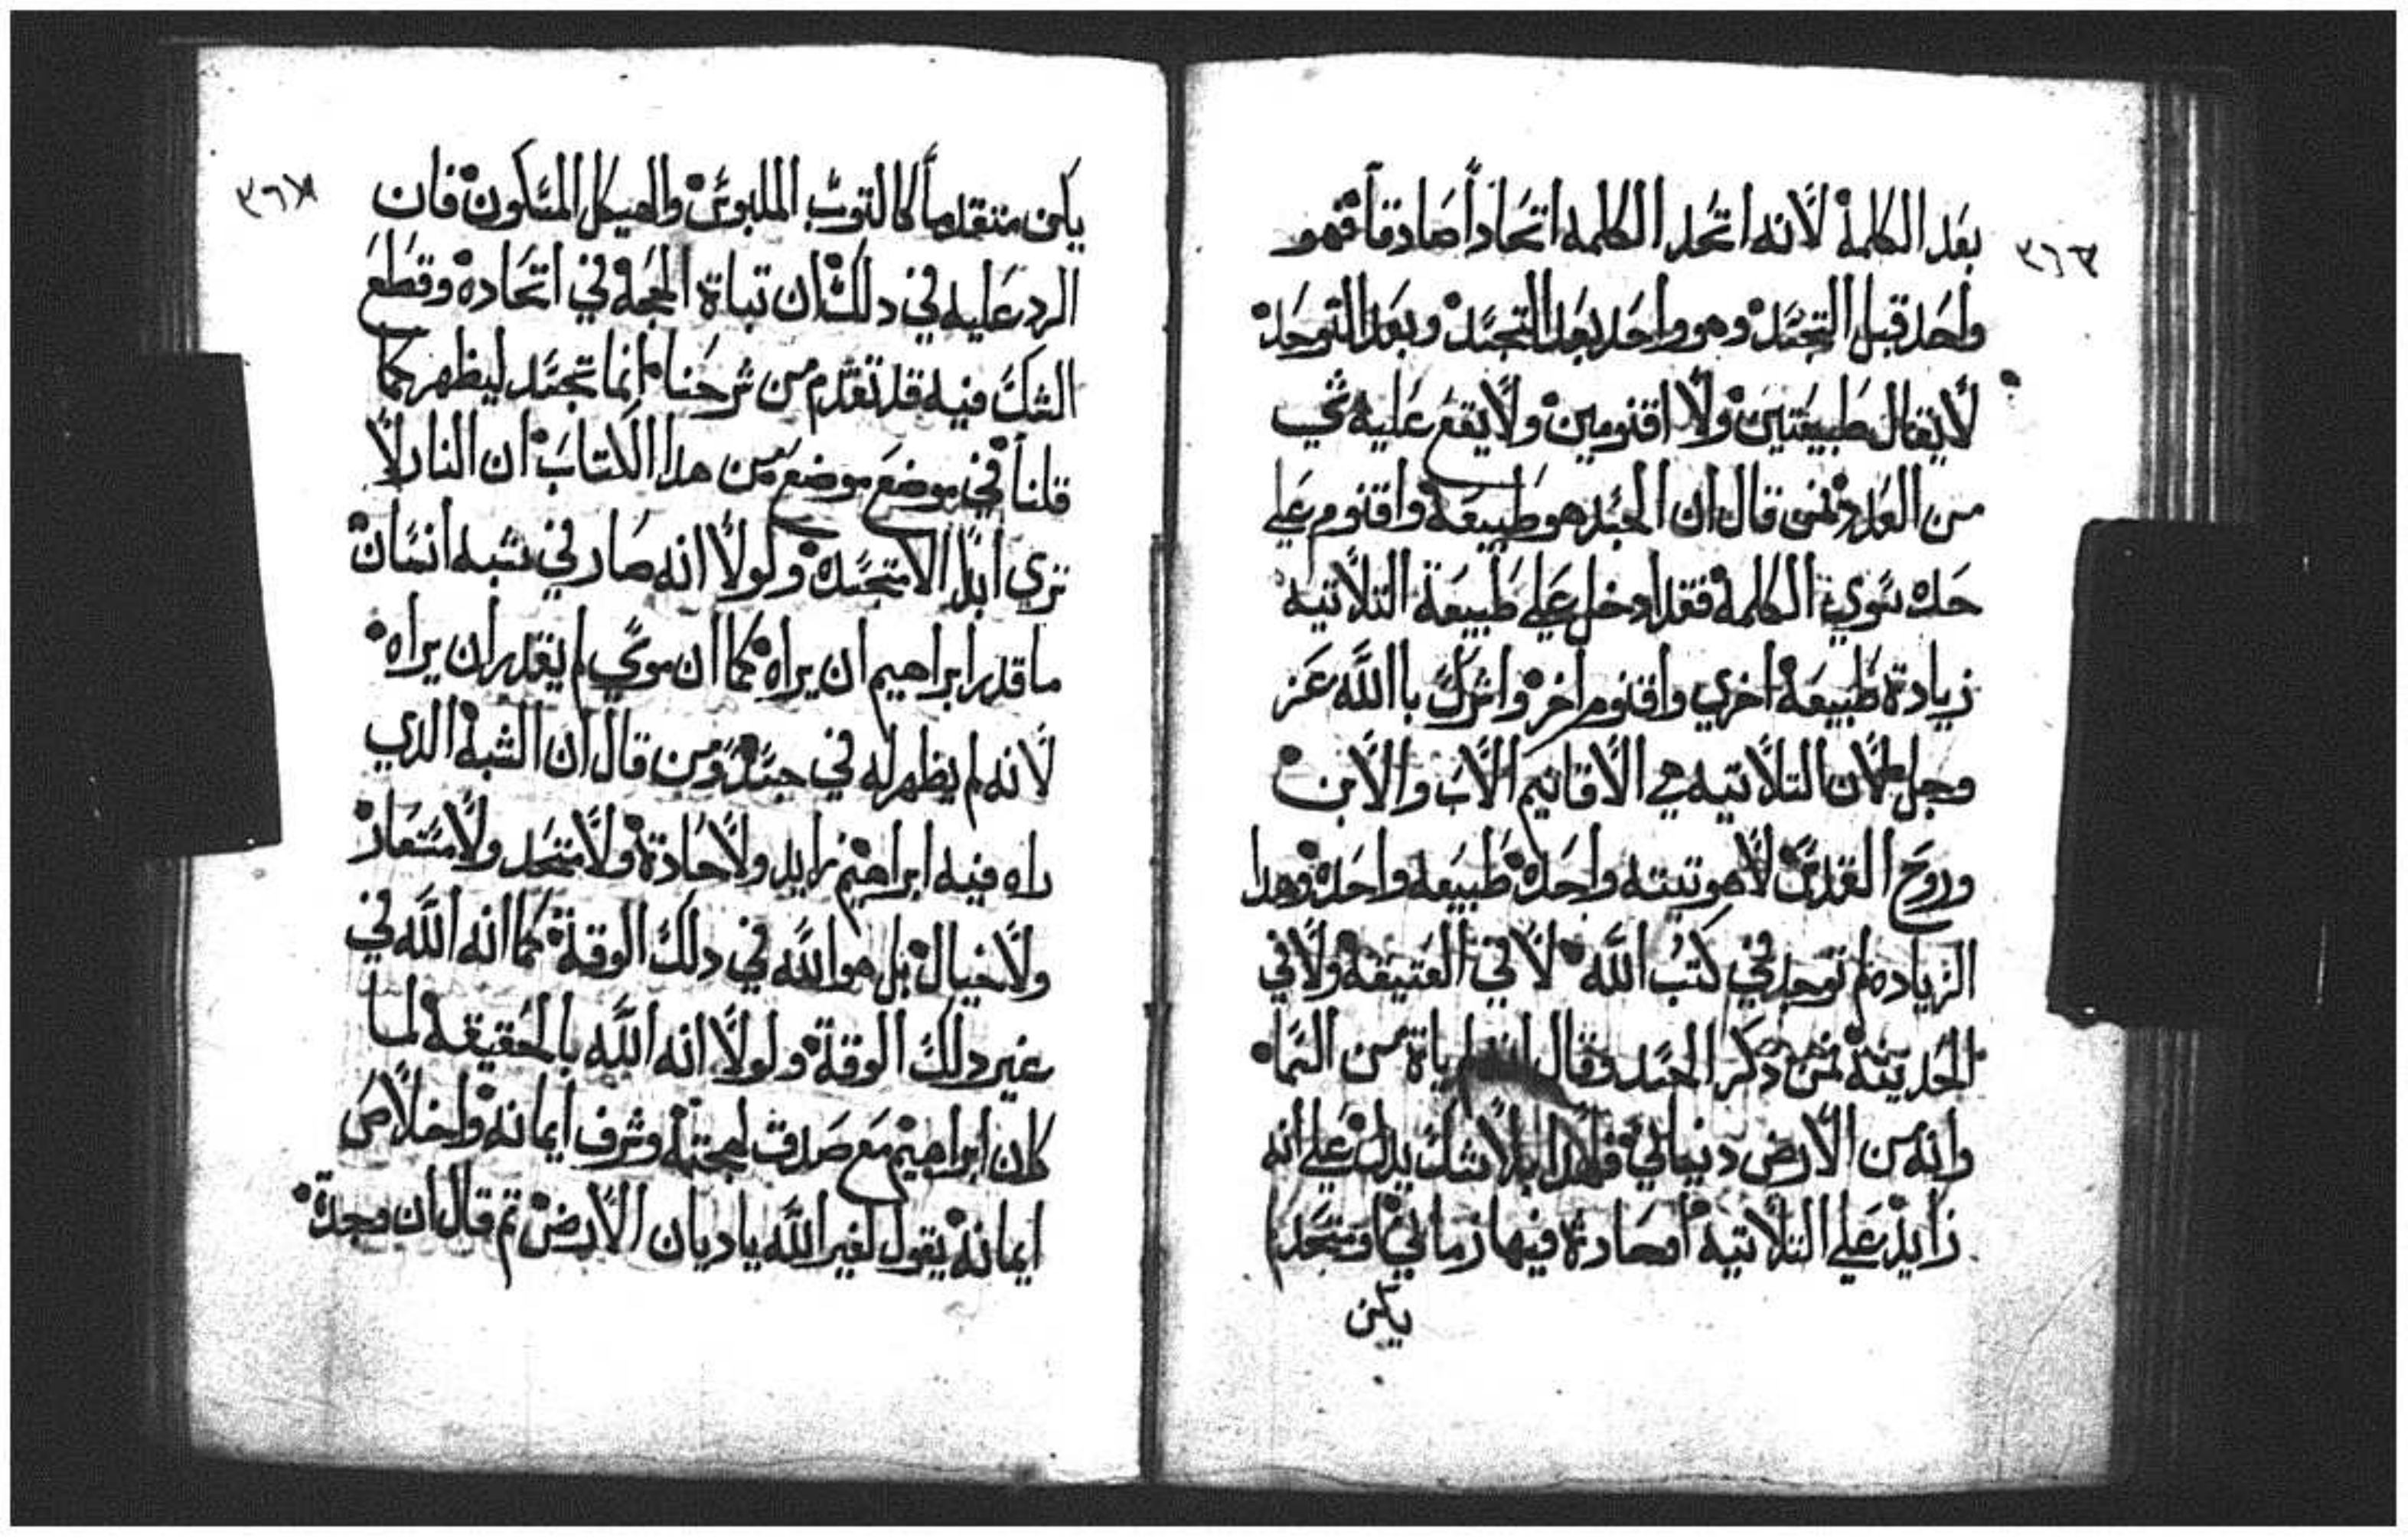 ٣٦٣
بعد الكلمة لأنه اتحد الكلمه اتحاداً صادقاً فهو
واحد قبل التجسد وهو واحد بعد التجسد وبعد التوحد
لأيقال طبيعتين ولأ اقنومين ولأيقع عليه شي
من العدد فمن قال ان الجسد هو طبيعة واقنوم علي
حده سوي الكلمه فقد ادخل علي طبيعة التلاتيه
زيادة طبيعة اخري واقنوم اخر واشرك باالله عز
وجل لأن التلاتيه هي الأقانيم الأب والأبن
وروح القدس لأهوتيته واحده طبيعه واحده وهدا
الزياده لم توجد في كتب الله لأ في العتيقة ولأفي
الحديتة فمن دكر الجسد وقال انه لم ياة من السما
وانه من الأرض دنيماني فهدا بلأشك يدل علي انه
زايد علي التلاتيه امحادة فيها زماني اومتحد لم
يكن
٣٦٤
يكن متقدماً كالتوب الملبوس والهيكل المسكون فان
الرد عليه في دلك ان تباة الحجة في اتحاده وقطع
الشك فيه قد تقدم من شرحنا انما تجسد ليظهر كما
قلنا في موضع موضع من هدا الكتاب ان النار لأ
تري ابدا الأ متجسده ولولأ انه صار في شبه انسان
ما قدر ابراهيم ان يراه كما ان موسي لم يقدر ان يراه
لأنه لم يظهر له في جسد ومن قال ان الشبه الدي
راه فيه ابراهيم زايد ولأحادة ولأمتحد ولأمستعار
ولأخيال بل هو الله في دلك الوقة كما انه الله في
غير دلك الوقة ولولأ انه الله بالحقيقه لما
كان ابراهيم مع صدق لهجته وشرف ايمانه واخلاص
ايمانه يقول لغير الله ياديان الأرض تم قال ان وجدة